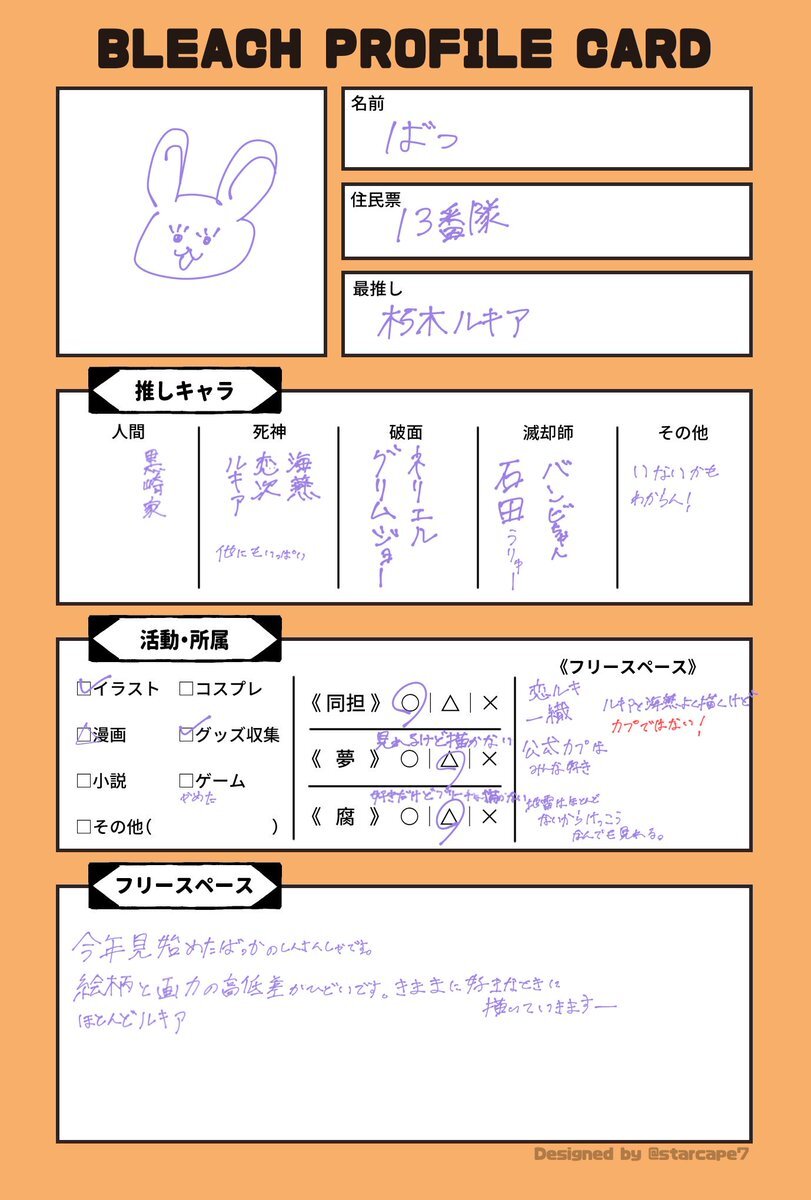 BLEACH PROFILE CARD
名前
ばっ
住民票
13番隊
最推し
朽木ルキア
推しキャラ
人間
黒崎家
死神
海燕
恋次
ルキア
他にもいっぱい
破面
ネリエル
グリムジョー
滅却師
バンビちゃん
石田うりゅー
その他
いないかも
わからん!
活動・所属
□イラスト □コスプレ
□漫画 □グッズ収集
□小説 □ゲーム
やめた
□その他( )
《同担》○|△|×
見れるけど描かない
《夢》○|△|×
好きだけどブリーチは描かない
《腐》○|△|×
《フリースペース》
恋ルキ
一織
ルキアと海燕よく描くけど
カプではない!
公式カプは
みんな好き
地雷はほとんど
ないからけっこう
なんでも見れる。
フリースペース
今年見始めたばっかのしんさんしゃです。
絵柄と画力の高低差がひどいです。きままに好きなときに
描いていきますー
ほとんどルキア
Designed by @starcape7